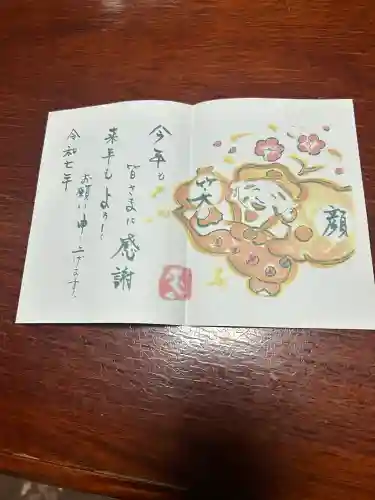 今年も
皆さまに感謝
来年もよろしく
お願い申し上げます。
令和七年
笑
顔